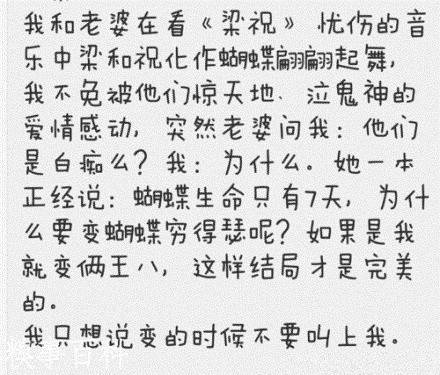 我和老婆在看《梁祝》忧伤的音
乐中梁和祝化作蝴蝶翩翩起舞,
我不免被他们惊天地、泣鬼神的
爱情感动, 突然老婆问我: 他们
是白痴么? 我: 为什么。她一本
正经说: 蝴蝶生命只有7天, 为什
么要变蝴蝶穷得瑟呢? 如果是我
就变俩王八, 这样结局才是完美
的。
我只想说变的时候不要叫上我。
糗事百科